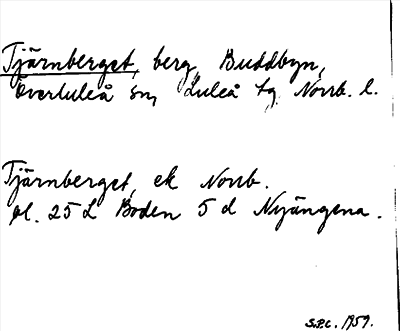 Tjärnberget, berg Buddbyn,
Överluleå sn, Luleå tg. Norrb. l.
Tjärnberget, ek Norrb.
bl. 25 L Boden 5 d Nyängena.
S.P.C. 1959.